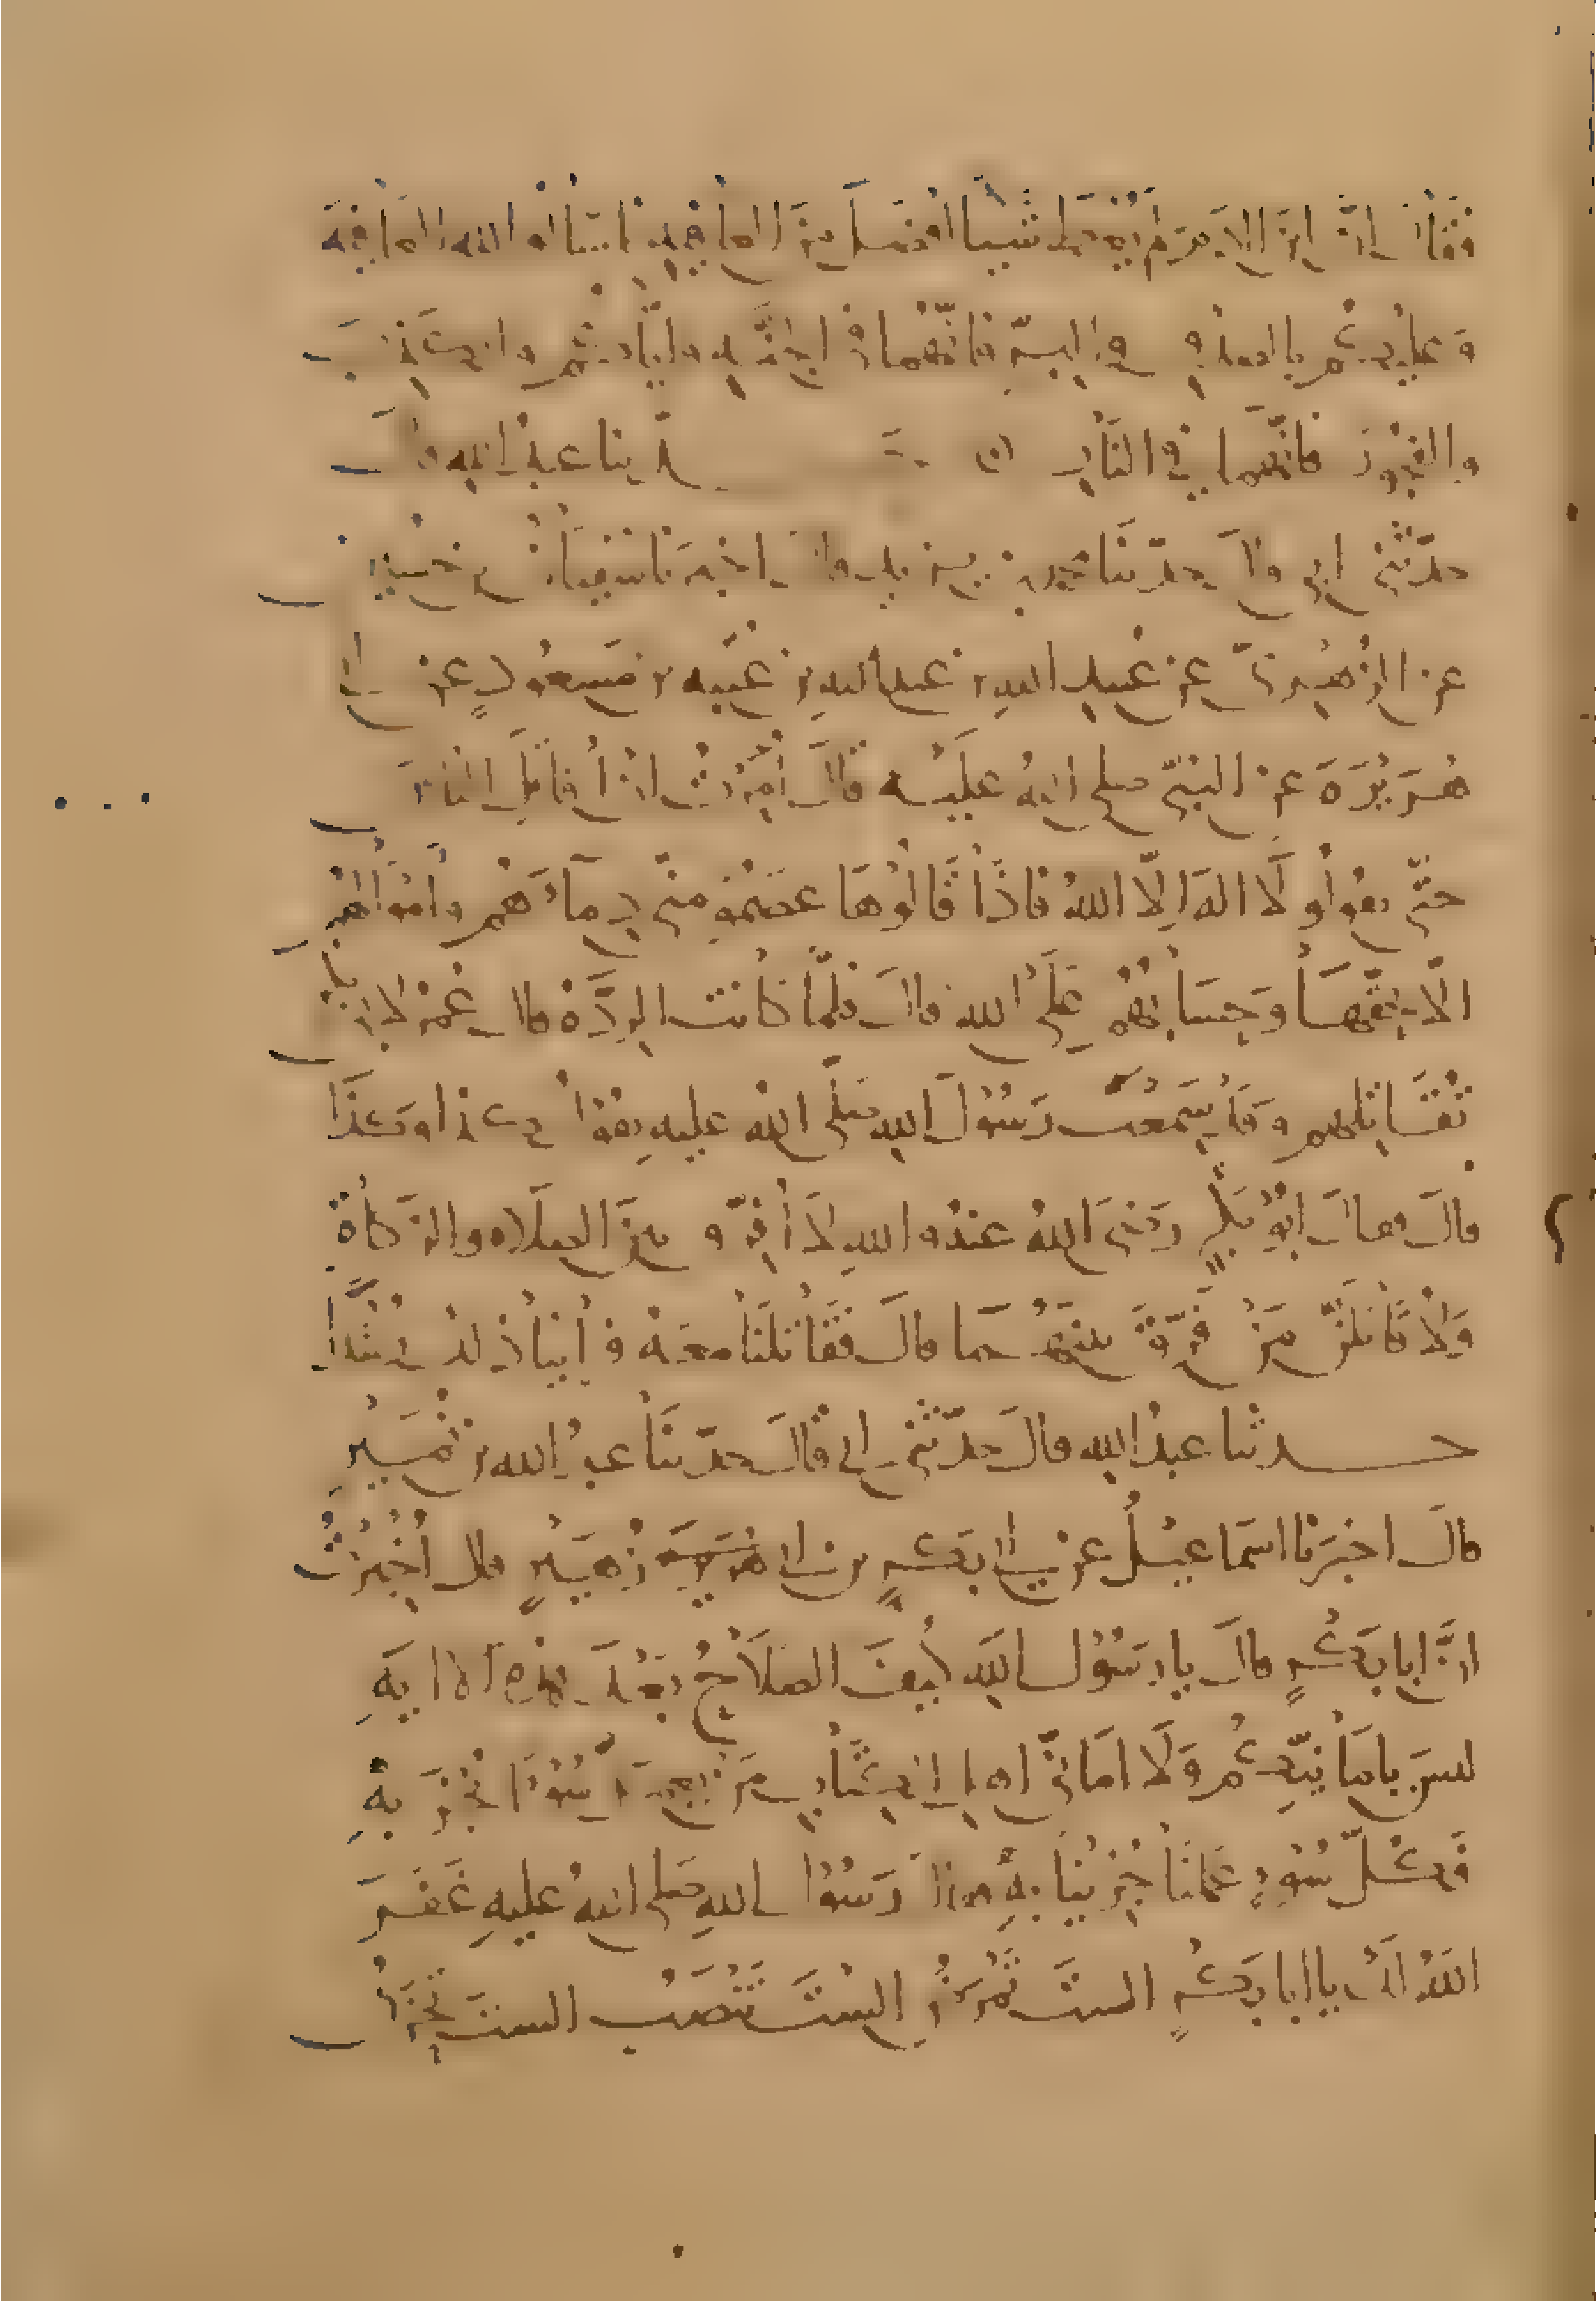 فَقَالَ إنَّ ابنَ الادَمَ لم يُعْطَ شيئًا افضلَ مِنَ العافيةِ فاسئلوا الله العافيةَ
وَعليكم بالصدق والبِرّ فانّهما في الجنّةِ وايّاكم والكذبَ
والفجورَ فانّهما في النّار حدّثنا عبدُ الله قالَ
حدّثني ابي قالَ حدّثنا محمد بن يزيد قالَ اخبرَنا سفيانُ بن حسين
عن الزُهْرىّ عن عُبيدِ اللهِ بن عبداللهِ بن عُتبه بن مَسعُودٍ عن ابي
هُرَيْرَةَ عن النبيّ صلى اللهُ عليْه قالَ اُمِرْتُ انْ اُقاتِلَ الناسَ
حتّى يقولُوا لَا الهَ اِلّا اللهُ فاذَا قَالُوْهَا عصَمُوا منّى دِمَآءَهُم واموَالهم
الّا بحقّهَا وَحِسَابُهُمْ عَلَى اللهِ قالَ فلمّا كانت الرِدَّةُ قال عُمَرُ لابى بكر
تُقَاتِلهم وقد سَمعْتَ رَسُوْلَ اللهِ صَلّى اللهُ عليهِ يقوْلُ كذا وَكَذَا
قالَ فقالَ ابُوْ بَكرٍ رَضىَ اللهُ عنهُ واللهِ لَا اُفرّق بينَ الصلاه والزكاة
وَلاُقَاتلنّ مَنْ فرّقَ بينَهُما قالَ فَقَاتَلنَا معَهُ فراَيْنا ذلك رُشْدًا
حدثنا عبدُ الله قالَ حدّثَنى ابى قَالَ حدّثنَا عبدُ الله بن نُمَيْرٍ
قالَ اخبَرنا اسمَاعِيْلُ عن ابى بكرٍ بن ابى زُهَيْرٍ قال اُخْبِرْتُ
انّ ابا بَكرٍ قالَ يا رَسُوْلَ اللهِ كيفَ الصَلَاحُ بَعْدَ هذه الايَةِ
ليسَ بامَانيّكُم وَلَا امَانىّ اهلِ الكِتَابِ مَن يعمل سُوْءًا يُجْزَ بهِ
فَكُلّ سُوْءٍ عَمِلنَا جُزِيْنَا بِهِ فقالَ رَسُوْلُ اللهِ صَلى اللهُ عليهِ غَفَرَ
اللهُ لكَ يا ابا بَكْرٍ الستَ تَمْرَضُ الستَ تَنْصَبُ الستَ تَحْزَنُ